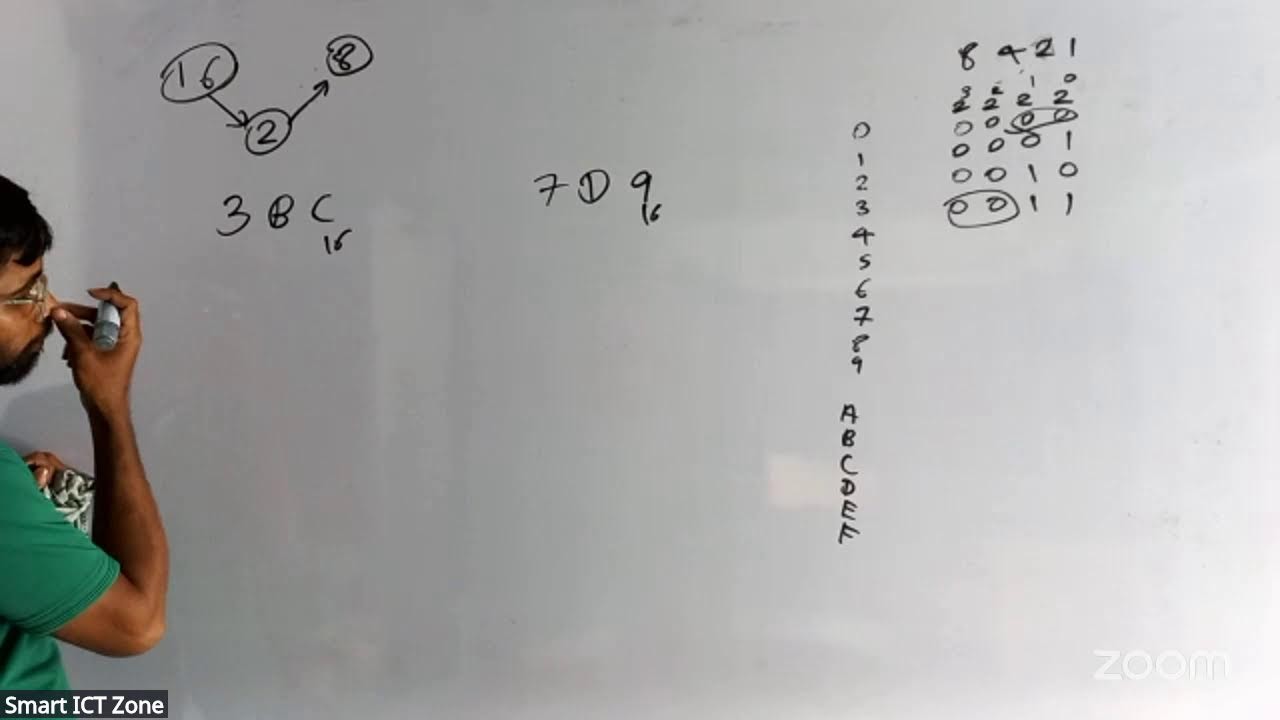 16 8
2
3 B C 16
7 D 9 16
8 4 2 1
3 2 1 0
2 2 2 2
0 0 0 0 0
1 0 0 0 1
2 0 0 1 0
3 0 0 1 1
4
5
6
7
8
9
A
B
C
D
E
F
zoom
Smart ICT Zone